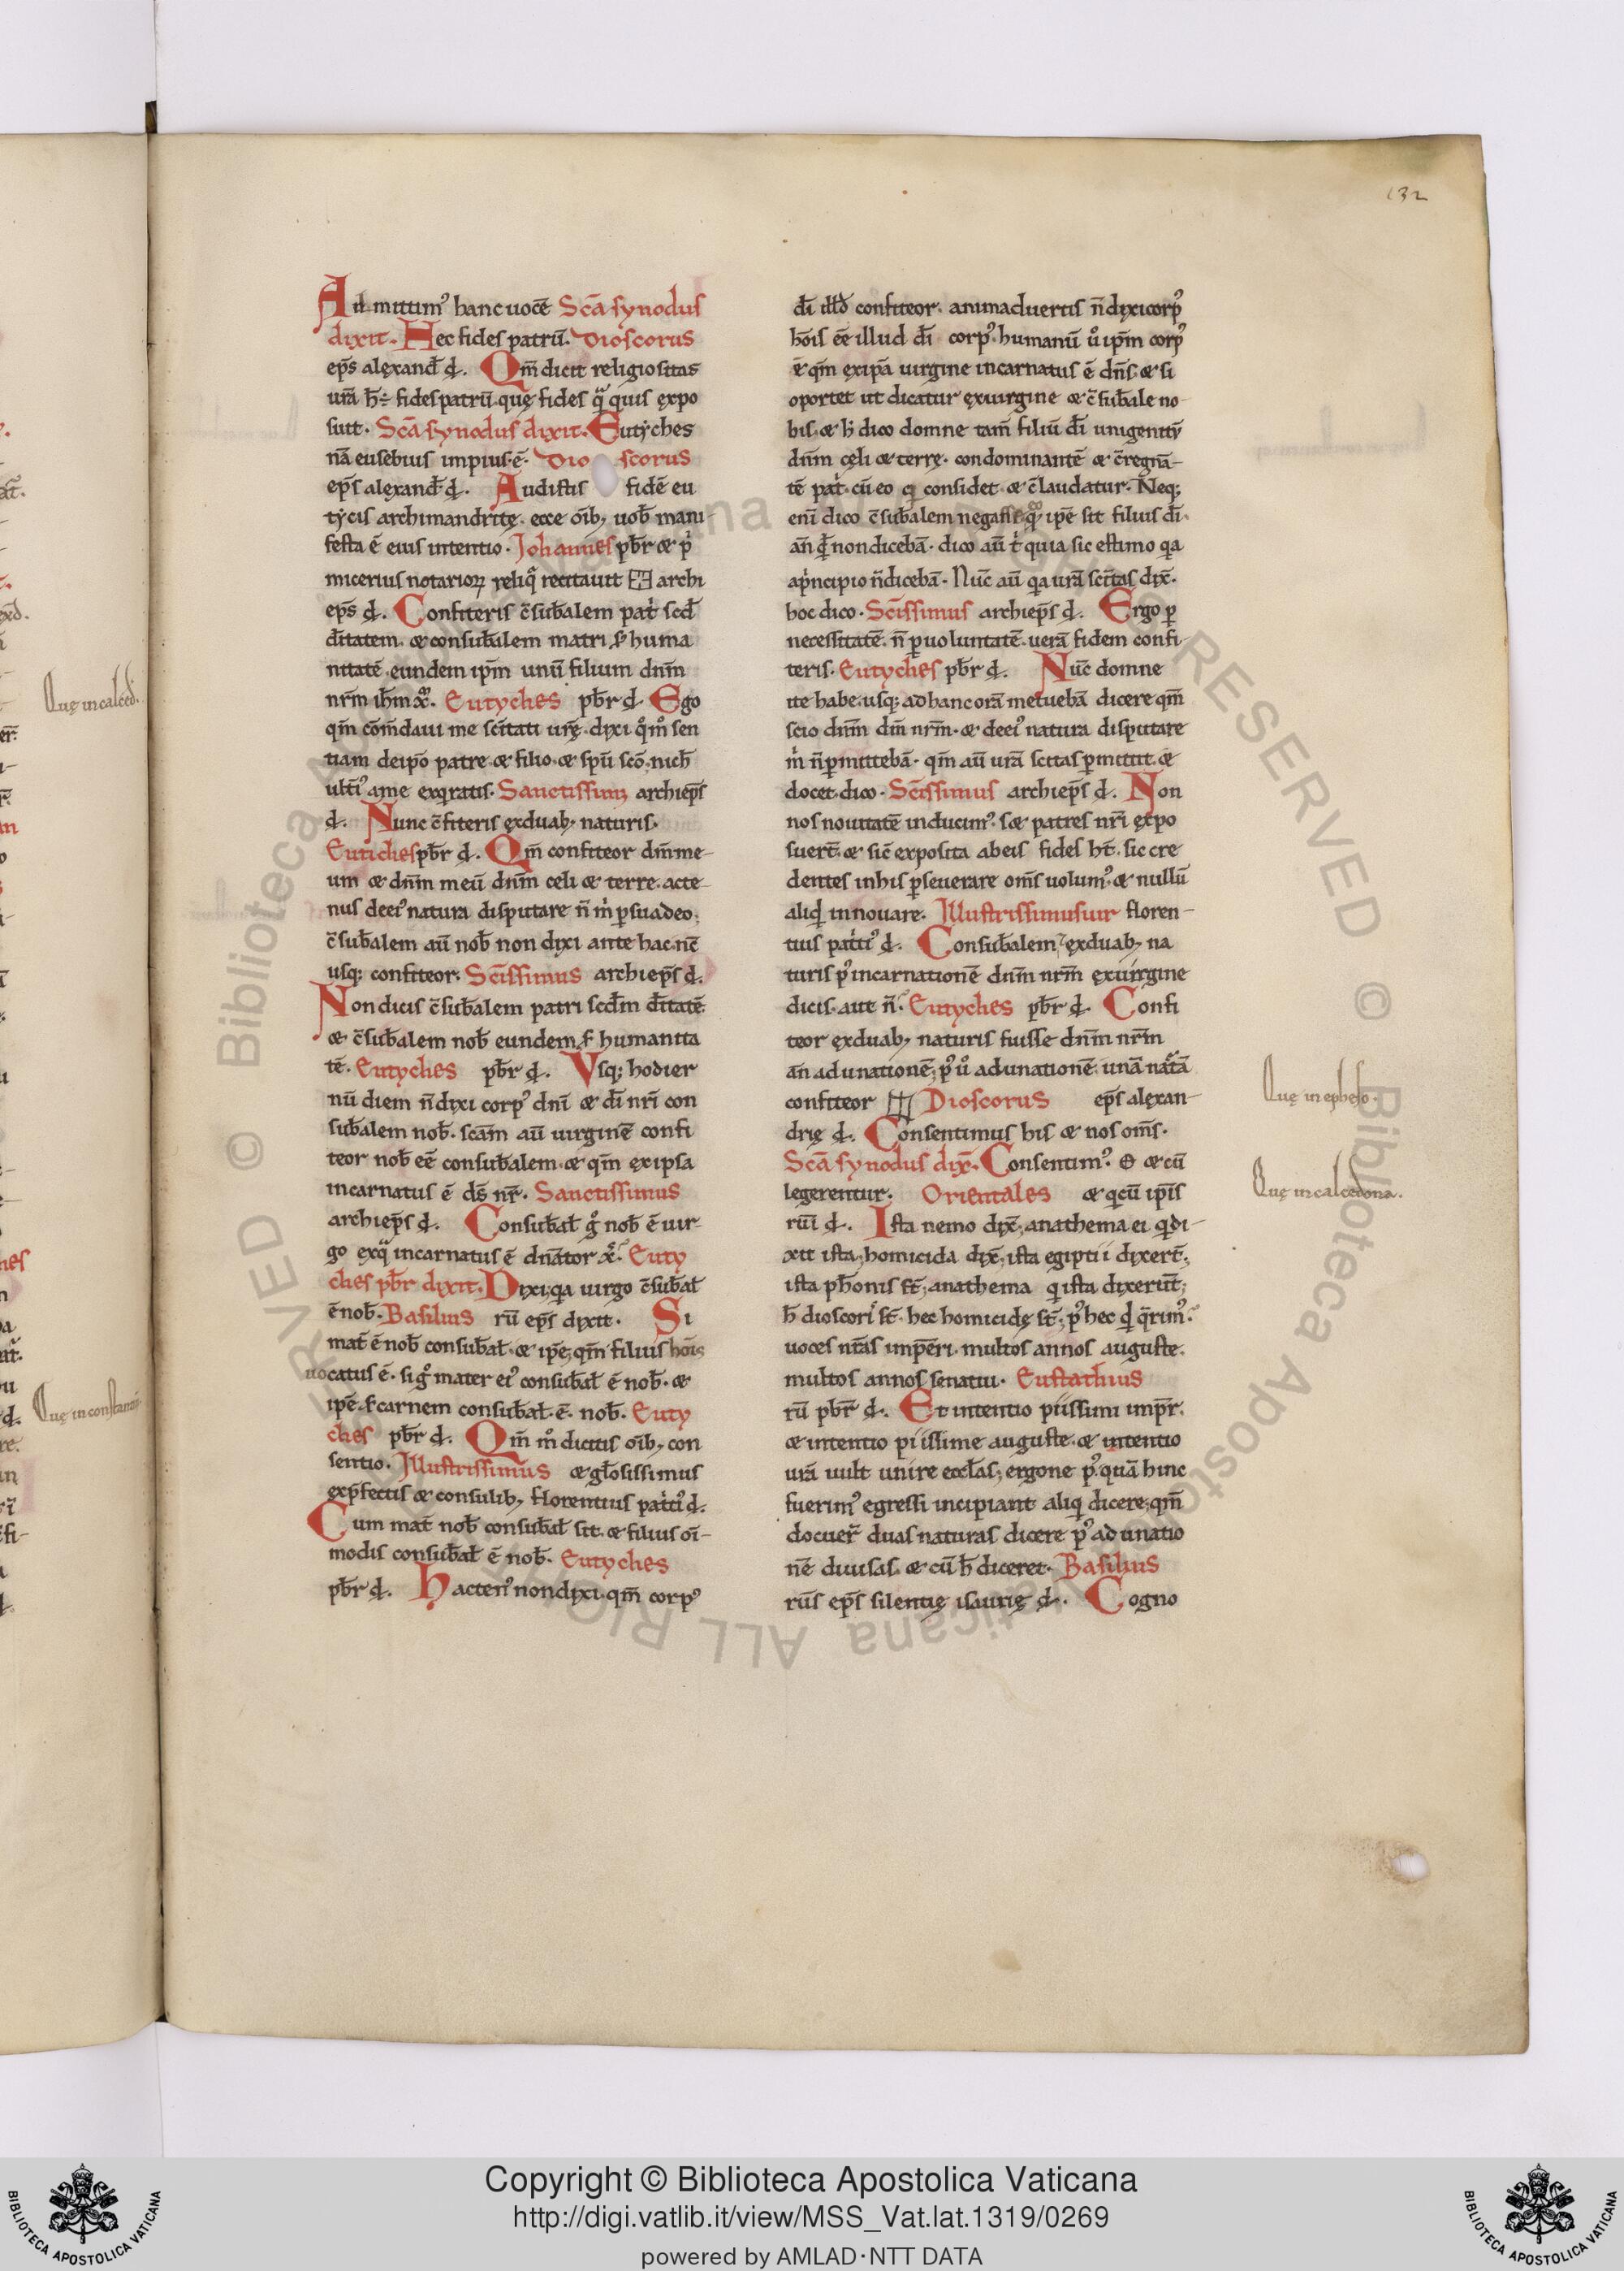 132
Admittim᾿ hanc uocē Scā synodus
dixit. Hec fides patrū. Dioscorus
ep̄s alexand̄ d̄. Qm̄ dicit religiositas
urā h̄ ÷ fides patrū. quę fides q̄ quis expo
suit. Scā synodus dixit. Eutyches
nā eusebius impius ē. Dioscorus
ep̄s alexand̄ d̄. Audistis fidē eu
tycis archimandritę. ecce oīb; uob̄ mani
festa ē eius intentio. Johannes pb̄r & p̄
micerius notarioꝝ reliq̄ recitauit archi
ep̄s d̄. Confiteris c̄sub̄alem pat̄ scd̄
d̄itatem. & consub̄alem matri s̄ huma
nitatē eundem ip̄m unū filium dn̄m
nr̄m ih̄m xp̄. Eutyches pb̄r d̄. Ego
qm̄ com̄daui me sc̄itati urę. dixi qm̄ sen
tiam de ip̄o patre & filio & sp̄u scō. nich̄
ulti᾿ a me exq̄ratis. Sanctissimꝰ archiep̄s
d̄. Nunc c̄fiteris ex duab; naturis.
Eutiches pb̄r d̄. Qm̄ confiteor dm̄ me-
um & dn̄m meū dn̄m celi & terre. acte-
nus de ei᾿ natura disputare n̄ m̄ p̄suadeo.
c̄sub̄alem aū nob̄ non dixi ante hac. nc̄
usq; confiteor. Scīssimus archiep̄s d̄.
Non dicis c̄sub̄alem patri scd̄m d̄itatē.
& c̄sub̄alem nob̄ eundem s̄ humanita
tē. Eutyches pb̄r d̄. Vsq; hodier
nū diem n̄ dixi corp᾿ dn̄i & d̄i nr̄i con
sub̄alem nob̄. scām aū uirginē confi
teor nob̄ eē consub̄alem. & qm̄ ex ipsa
incarnatus ē d̄s nr̄. Sanctissimus
archiep̄s d̄. Consub̄al g᾿ nob̄ ē uir-
go ex q̄ incarnatus ē dn̄ator xp̄. Euty
ches pb̄r dixit. Dixi; qa uirgo c̄sub̄al
ē nob̄. Basilius rū ep̄s dixit. Si
mat̄ ē nob̄ consub̄al. & ip̄e; qm̄ filius hoīs
uocatus ē. si g᾿ mater ei᾿ consub̄al ē nob̄. &
ip̄e s̄ carnem consub̄al. ē nob̄. Euty
ches pb̄r d̄. Qm̄ m᾿ dicitis oīb; con
sentio. Illustrissimus & gl̄osissimus
exp̄fectis & consulib; florentius pat̄ti᾿ d̄.
Cum mat̄ nob̄ consub̄al sit. & filius oī-
modis consub̄al ē nob̄. Eutyches
pb̄r d̄. Hacten᾿ non dixi. qm̄ corp᾿
d̄i illd̄ confiteor. animaduertis n̄ dixi corp᾿
hoīs eē illud d̄i corp᾿. humanū u᾿ ip̄m corp᾿
ē qm̄ ex ipā uirgine incarnatus ē dn̄s. & si
oportet ut dicatur ex uirgine & c̄sub̄ale no-
bis. & h̄ dico domne tam̄ filiū d̄i unigenitū
dn̄m cęli & terrę. condominantē & c̄regnā-
tē pat̄. cū eo q̄ considet. & c̄laudatur. Neq;
eni dico c̄sub̄alem negasse q̄ ip̄e sit filius d̄i.
an̄ q̄ non dicebā. dico aū t̄ quia sic estimo qa
a p̄ncipio n̄ dicebā. Nūc aū qa urā sc̄itas dix̄.
hoc dico. Scīssimus archiep̄s d̄. Ergo p
necessitatē. n̄ p uoluntatē. uerā fidem confi-
teris. Eutyches pb̄r d̄. Nūc domne
ite habe. usq; ad hanc orā metuebā dicere qm̄
scio dn̄m dm̄ nr̄m. & de ei᾿ natura disputare
m̄ n̄ p̄mittebā. qm̄ aū urā sc̄itas p̄mittit. &
docet. dico. Scīssimus archiep̄s d̄. Non
nos nouitatē inducim᾿. s; & patres nr̄i expo
suer̄t. & sic̄ exposita ab eis fides h̄t. sic cre
dentes in his p̄seuerare om̄s uolum᾿. & nullū
aliq̄d innouare. Illustrissimus uir floren-
tius pat̄ti᾿ d̄. Consub̄alem ex duab; na
turis p᾿ incarnationē dn̄m nr̄m ex uirgine
dicis. aut n̄. Eutyches pb̄r d̄. Confi
teor ex duab; naturis fuisse dn̄m nr̄m
an̄ adunationē; p᾿ u᾿ adunationē. unā nat̄ā
confiteor Dioscorus ep̄s alexan-
drię d̄. Consentimus his & nos om̄s.
Scā synodus dix̄. Consentim᾿. & cū
legerentur. Orientales & q̄ cū ip̄is
rūi d̄. Ista nemo dix̄; anathema ei q̄ di-
xit ista; homicida dix̄; ista egiptii dixer̄t;
ista ph̄onis s̄t; anathema q̄ ista dixerūt;
h̄ dioscori s̄t. hec homicidę s̄t; p᾿ hec q̄d q̄rim᾿.
uoces nr̄as imp̄eri. multos annos auguste.
multos annos senatui. Eustathius
rū pb̄r d̄. Et intentio piissimi imp̄r.
& intentio piissime auguste. & intentio
urā uult unire eccl̄as; ergone p᾿ quā hinc
fuerim᾿ egressi incipiant aliq̄ dicere; qm̄
docuer̄ duas naturas dicere p᾿ adunatio
nē diuisas. & cū h̄ diceret. Basilius
rūs ep̄s silentię isaurię d̄. Cogno
Quę in calced.
Quę in constantī
Quę in epheso.
Quę in calcedona.
Copyright © Biblioteca Apostolica Vaticana
http://digi.vatlib.it/view/MSS_Vat.lat.1319/0269
powered by AMLAD·NTT DATA
BIBLIOTECA APOSTOLICA VATICANA
BIBLIOTECA APOSTOLICA VATICANA
© Biblioteca Apostolica Vaticana ALL RIGHTS RESERVED © Biblioteca Apostolica Vaticana ALL RIGHTS RESERVED